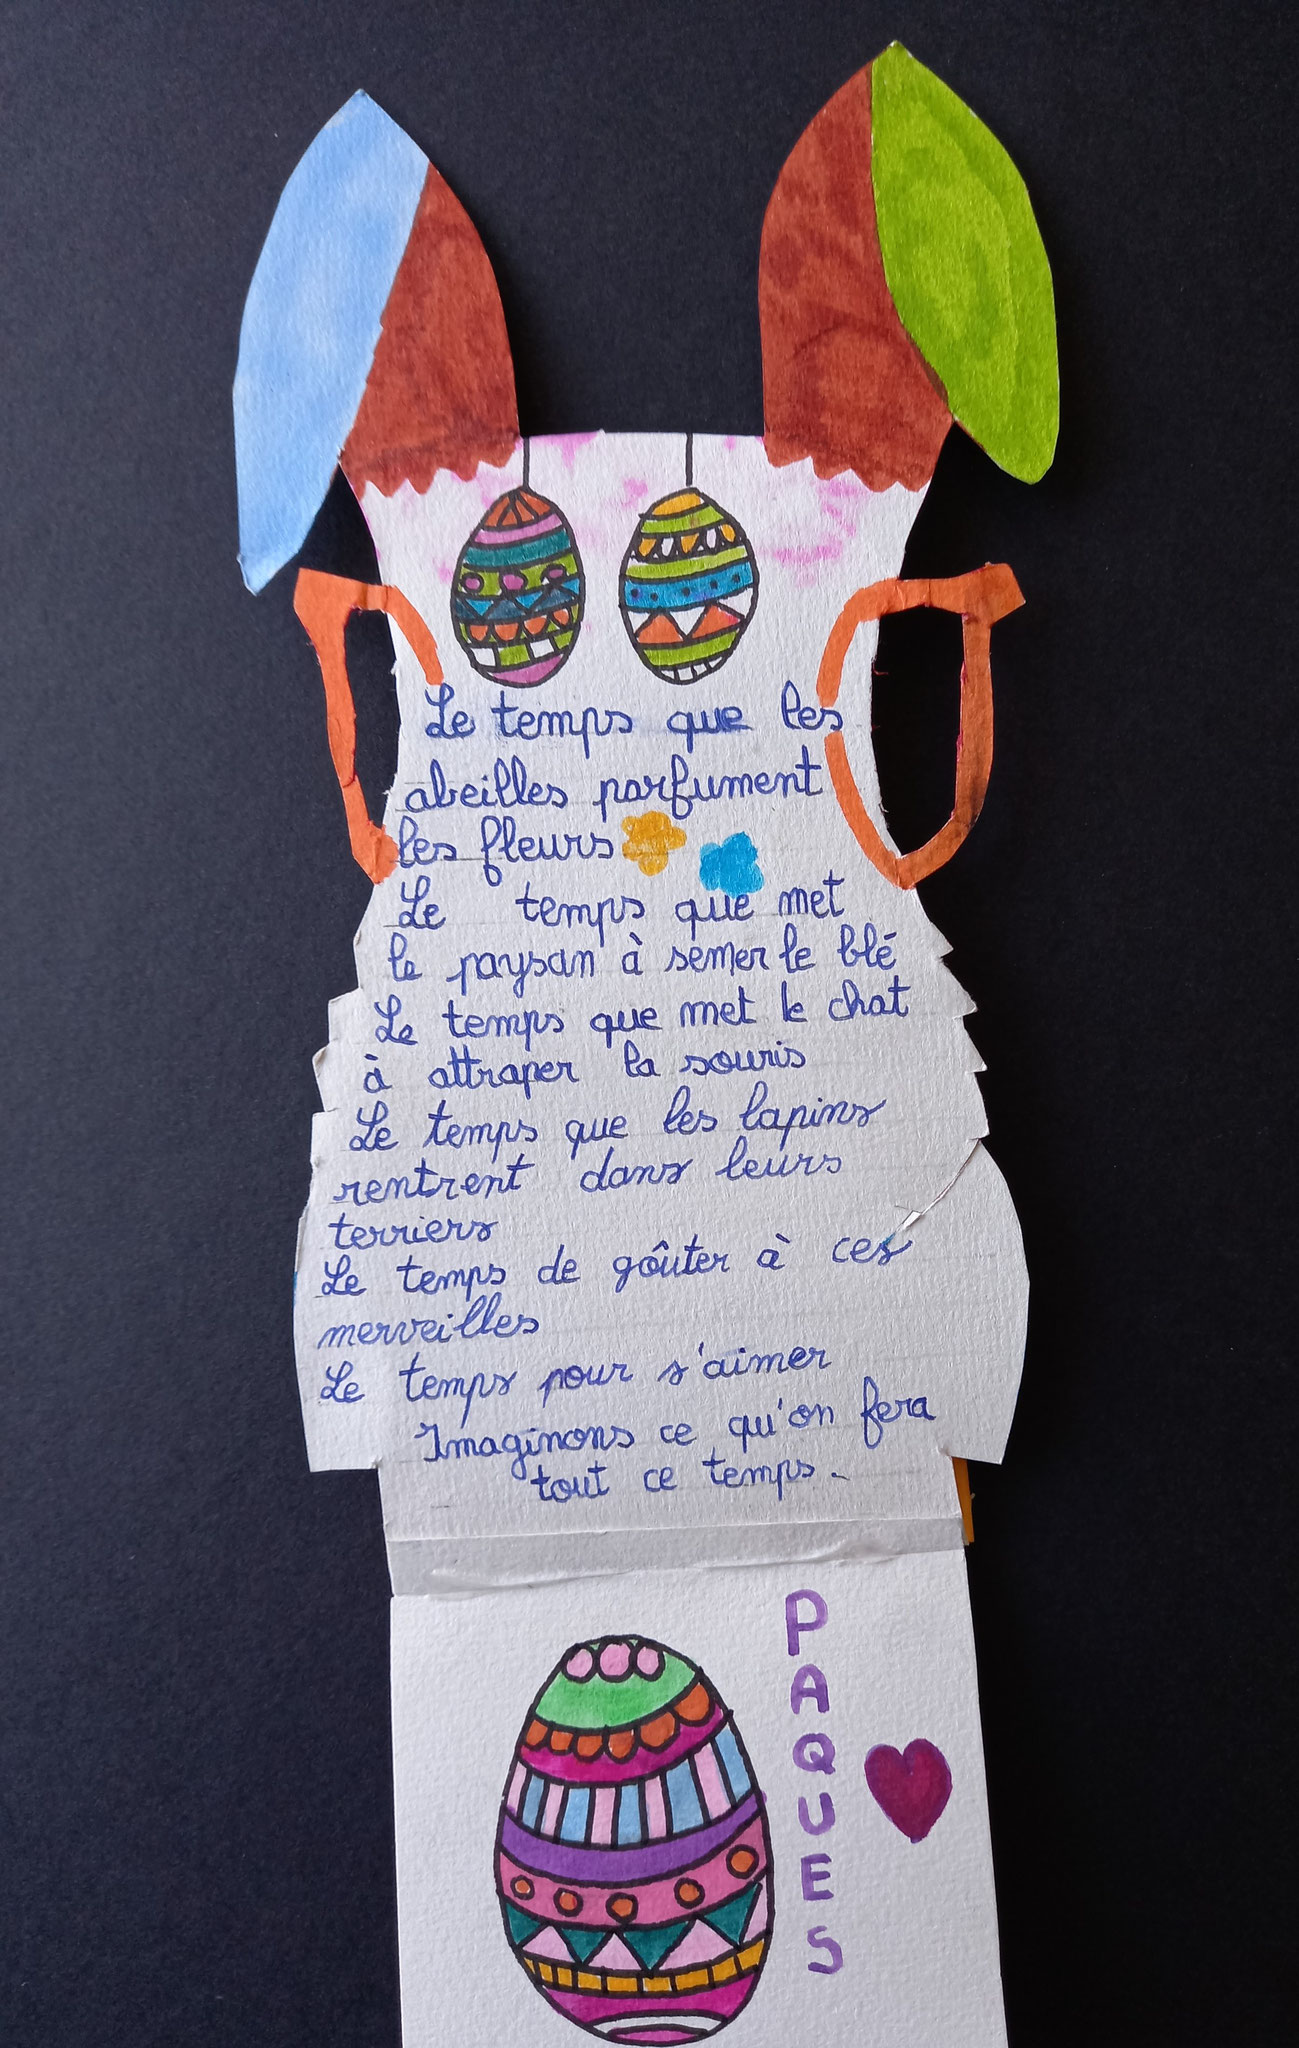 Le temps que les
abeilles parfument
les fleurs
Le temps que met
le paysan à semer le blé
Le temps que met le chat
à attraper la souris
Le temps que les lapins
rentrent dans leurs
terriers
Le temps de goûter à ces
merveilles
Le temps pour s'aimer
Imaginons ce qu'on fera
tout ce temps.
PAQUES